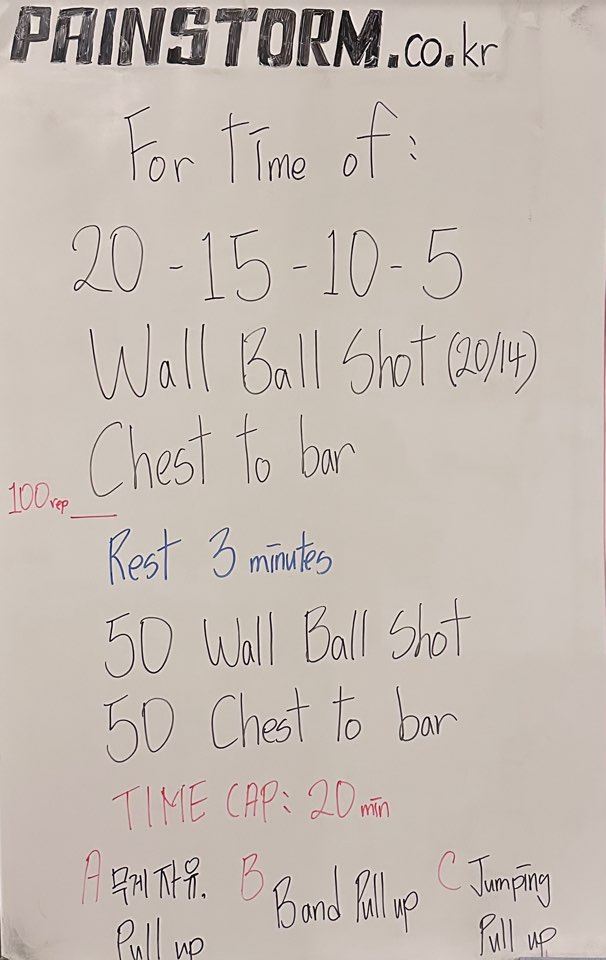 PAINSTORM.co.kr
For time of:
20-15-10-5
Wall Ball Shot (20/14)
Chest to bar
100rep
Rest 3 minutes
50 Wall Ball Shot
50 Chest to bar
TIME CAP: 20min
A 무게 자유. Pull up
B Band Pull up
C Jumping Pull up